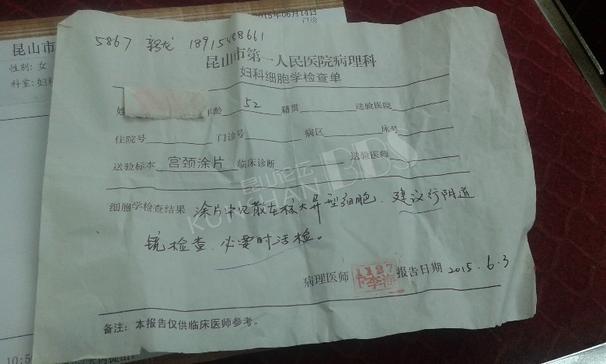 2015年06月14日
门诊
昆山市
性别：女
科室：妇科
5867 18915488661
昆山市第一人民医院病理科
妇科细胞学检查单
姓 年龄 52 籍贯 送验医院
住院号 门诊号 病区 床号
送验标本 宫颈涂片 临床诊断 送验医师
细胞学检查结果 涂片中见散在核大异型细胞，建议行阴道
镜检查，必要时活检。
病理医师 报告日期 2015.6.3
备注：本报告仅供临床医师参考。
昆山论坛
KUNSHAN BBS
10:5